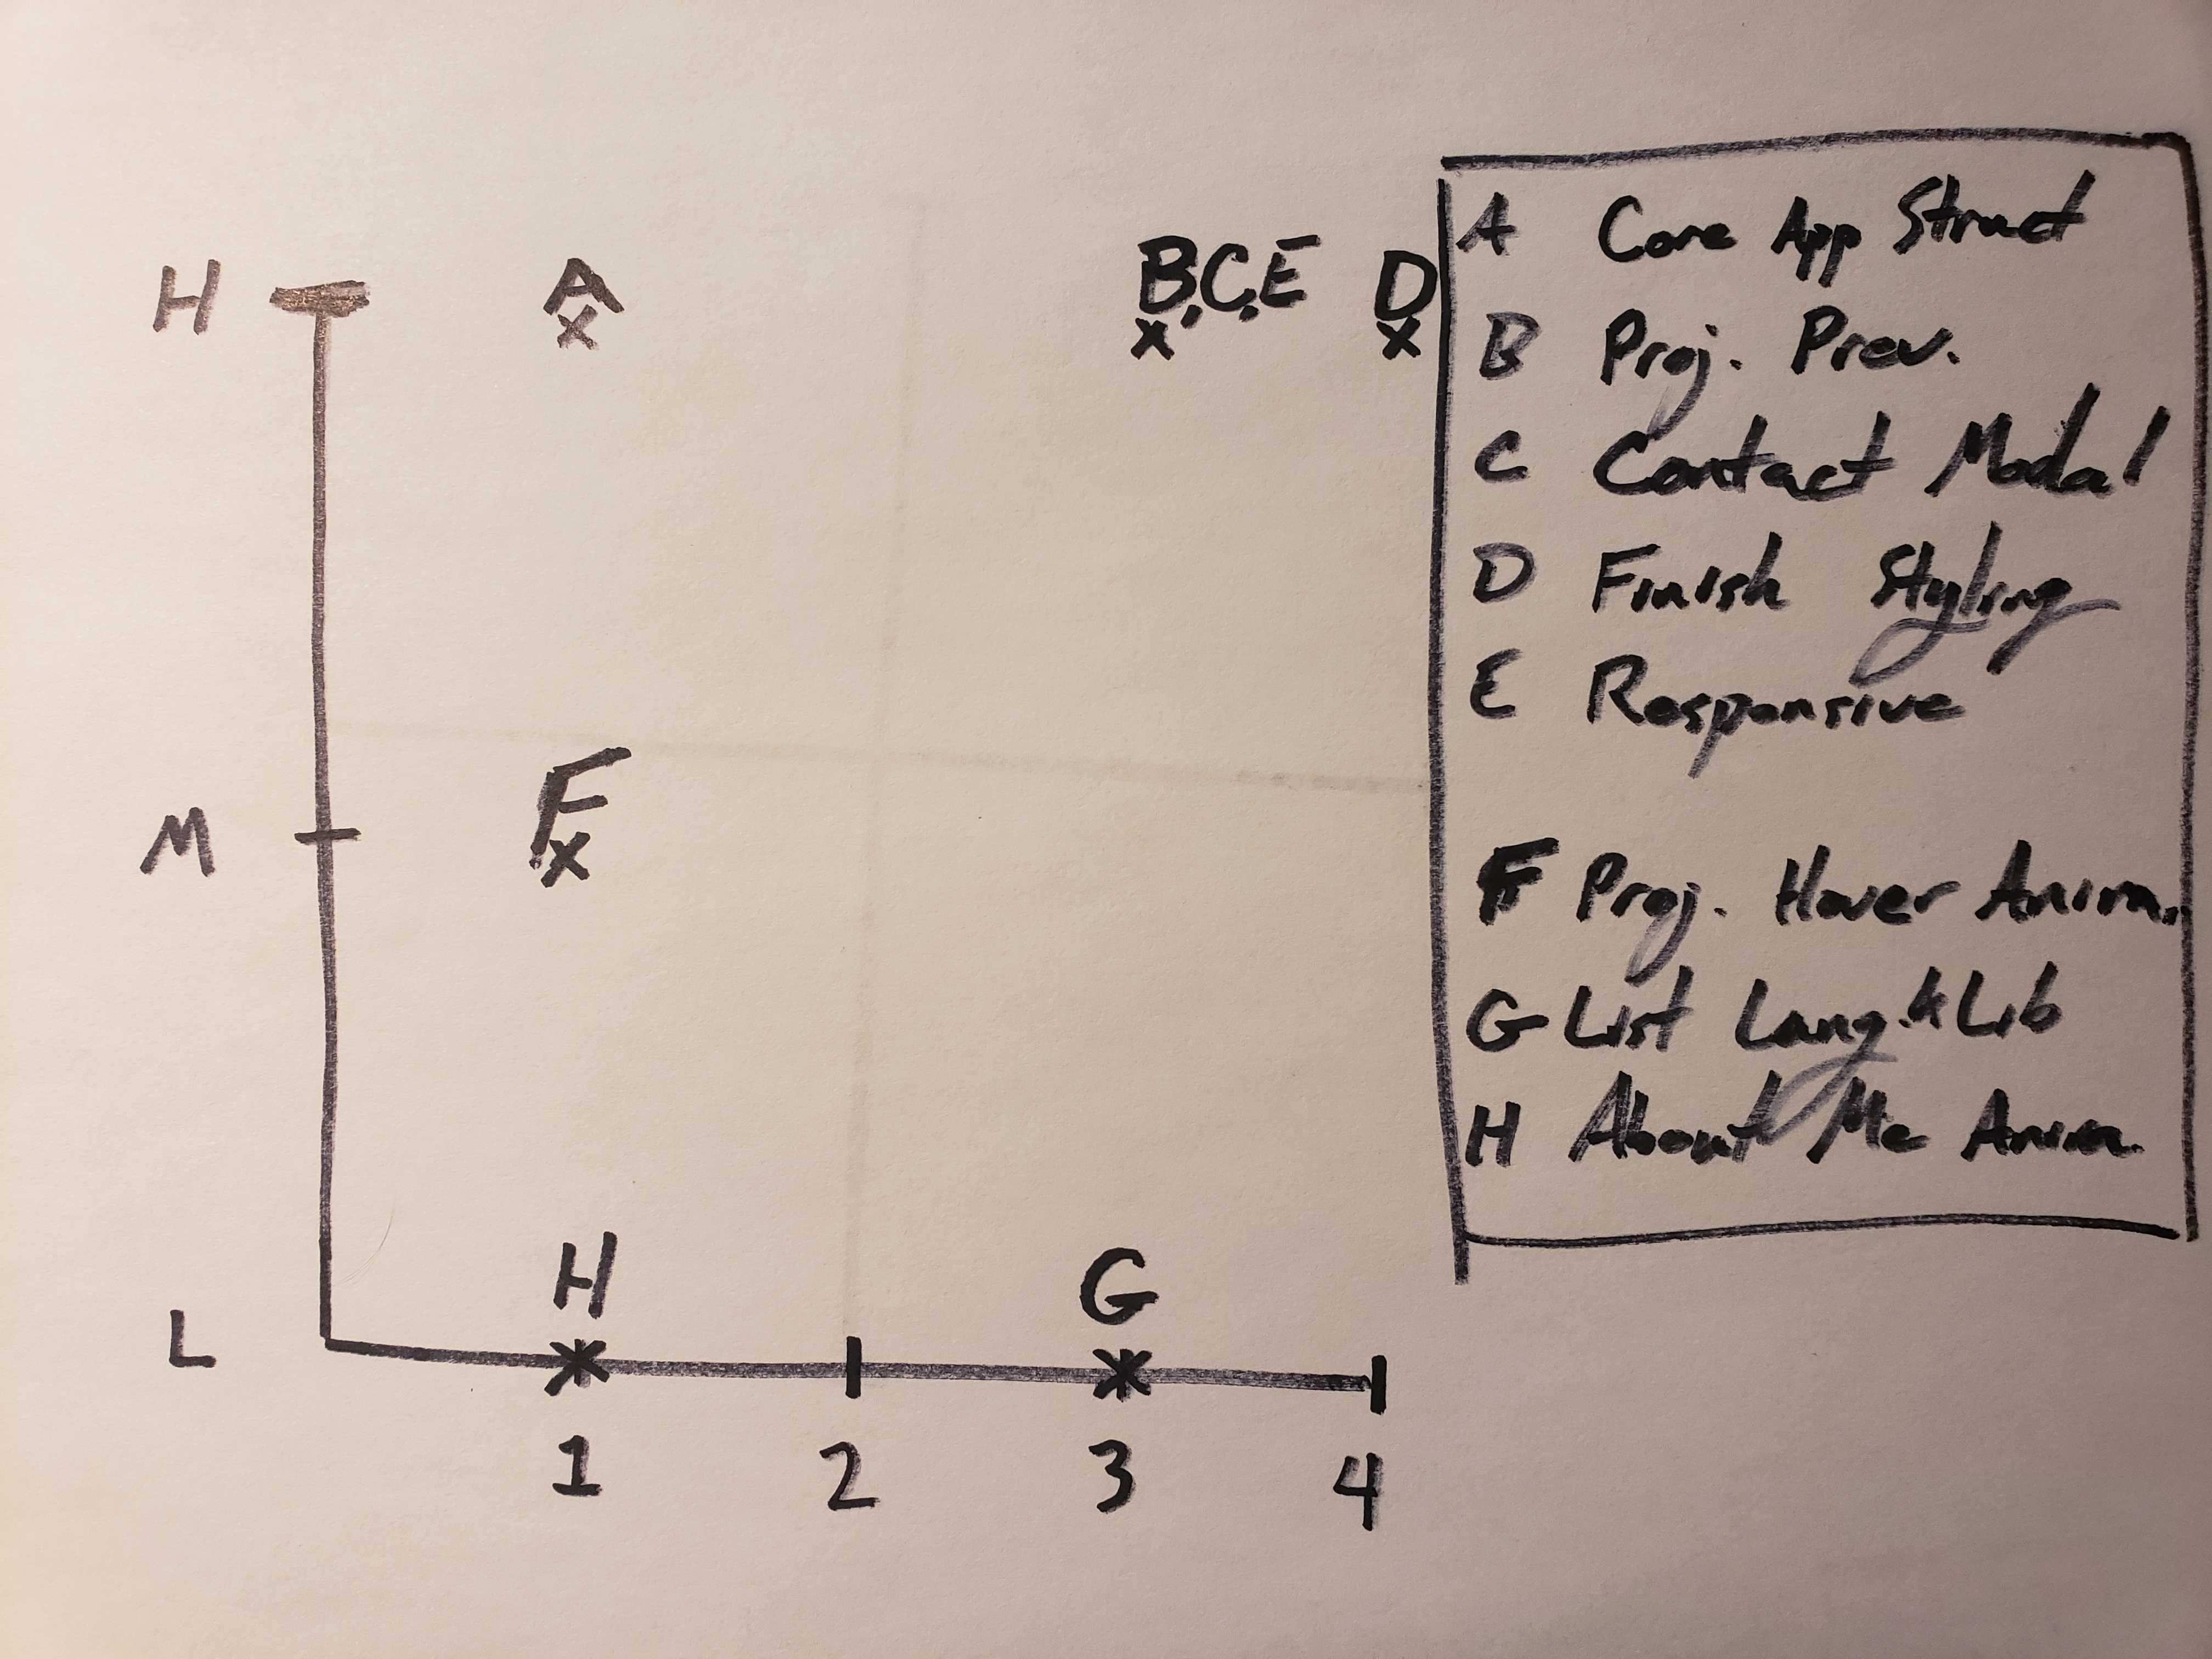 H
A
B,C,E
D
x
x
x
M
F
x
L
H
G
1
2
3
4
A Core App Struct
B Proj. Prev.
C Contact Modal
D Finish Styling
E Responsive
F Proj. Hover Anim.
G List Lang. & Lib
H About Me Anim.